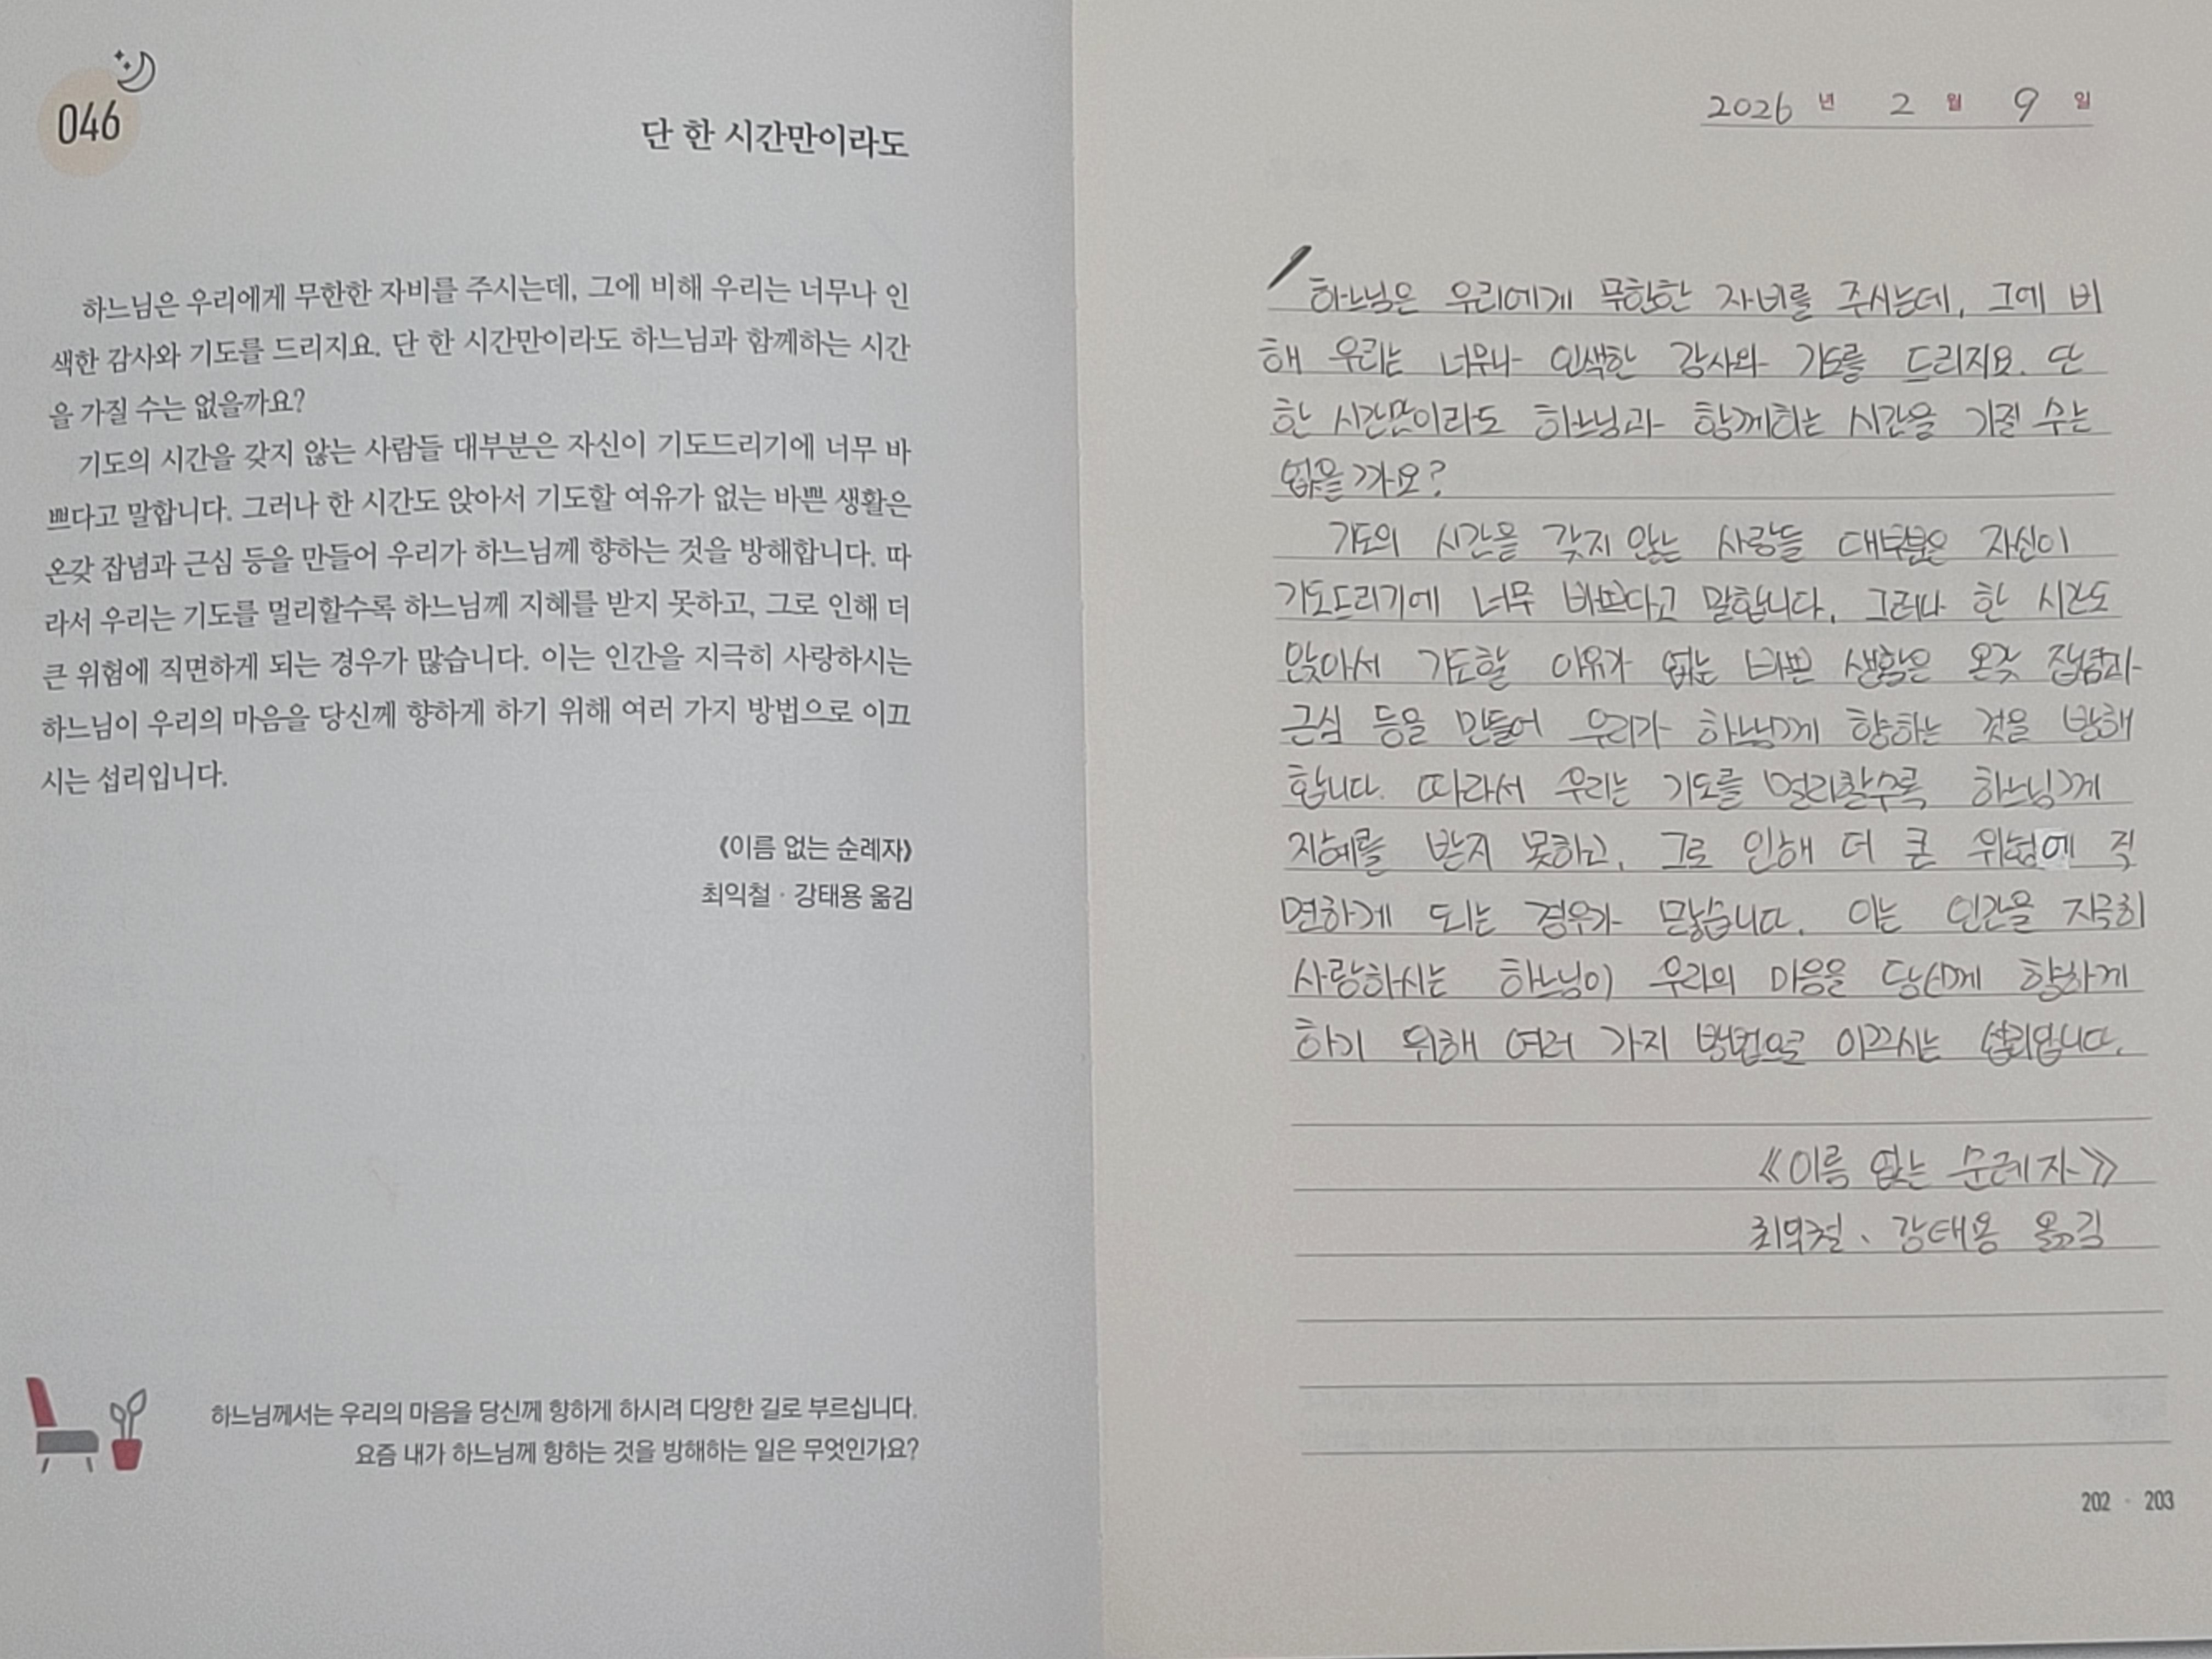 046
단 한 시간만이라도
하느님은 우리에게 무한한 자비를 주시는데, 그에 비해 우리는 너무나 인
색한 감사와 기도를 드리지요. 단 한 시간만이라도 하느님과 함께하는 시간
을 가질 수는 없을까요?
기도의 시간을 갖지 않는 사람들 대부분은 자신이 기도드리기에 너무 바
쁘다고 말합니다. 그러나 한 시간도 앉아서 기도할 여유가 없는 바쁜 생활은
온갖 잡념과 근심 등을 만들어 우리가 하느님께 향하는 것을 방해합니다. 따
라서 우리는 기도를 멀리할수록 하느님께 지혜를 받지 못하고, 그로 인해 더
큰 위험에 직면하게 되는 경우가 많습니다. 이는 인간을 지극히 사랑하시는
하느님이 우리의 마음을 당신께 향하게 하기 위해 여러 가지 방법으로 이끄
시는 섭리입니다.
《이름 없는 순례자》
최익철 · 강태용 옮김
하느님께서는 우리의 마음을 당신께 향하게 하시려 다양한 길로 부르십니다.
요즘 내가 하느님께 향하는 것을 방해하는 일은 무엇인가요?
2026 년 2 월 9 일
하느님은 우리에게 무한한 자비를 주시는데, 그에 비
해 우리는 너무나 인색한 감사와 기도를 드리지요. 단
한 시간만이라도 하느님과 함께하는 시간을 가질 수는
없을까요?
기도의 시간을 갖지 않는 사람들 대부분은 자신이
기도드리기에 너무 바쁘다고 말합니다. 그러나 한 시간도
앉아서 기도할 여유가 없는 바쁜 생활은 온갖 잡념과
근심 등을 만들어 우리가 하느님께 향하는 것을 방해
합니다. 따라서 우리는 기도를 멀리할수록 하느님께
지혜를 받지 못하고, 그로 인해 더 큰 위험에 직
면하게 되는 경우가 많습니다. 이는 인간을 지극히
사랑하시는 하느님이 우리의 마음을 당신께 향하게
하기 위해 여러 가지 방법으로 이끄시는 섭리입니다.
《이름 없는 순례자》
최익철 · 강태용 옮김
202 · 203